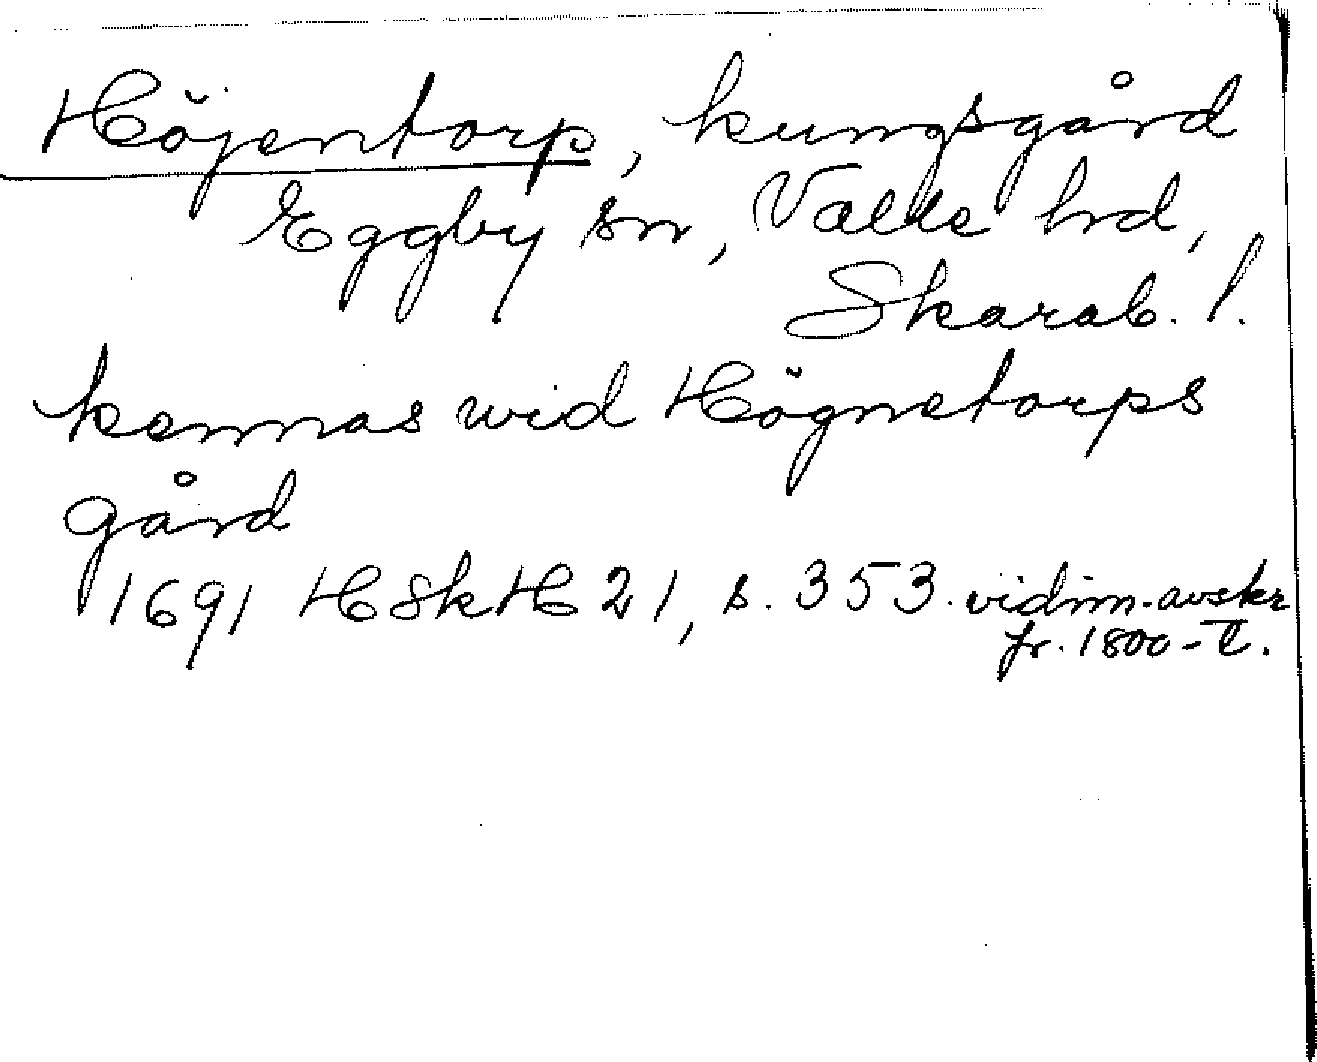 Höjentorp, kungsgård
Eggby sn, Valle hrd,
Skarab. l.
kennas wid Högnetorps
gård
1691 HSkH 21, s. 353. vidim. avskr
fr. 1800-t.